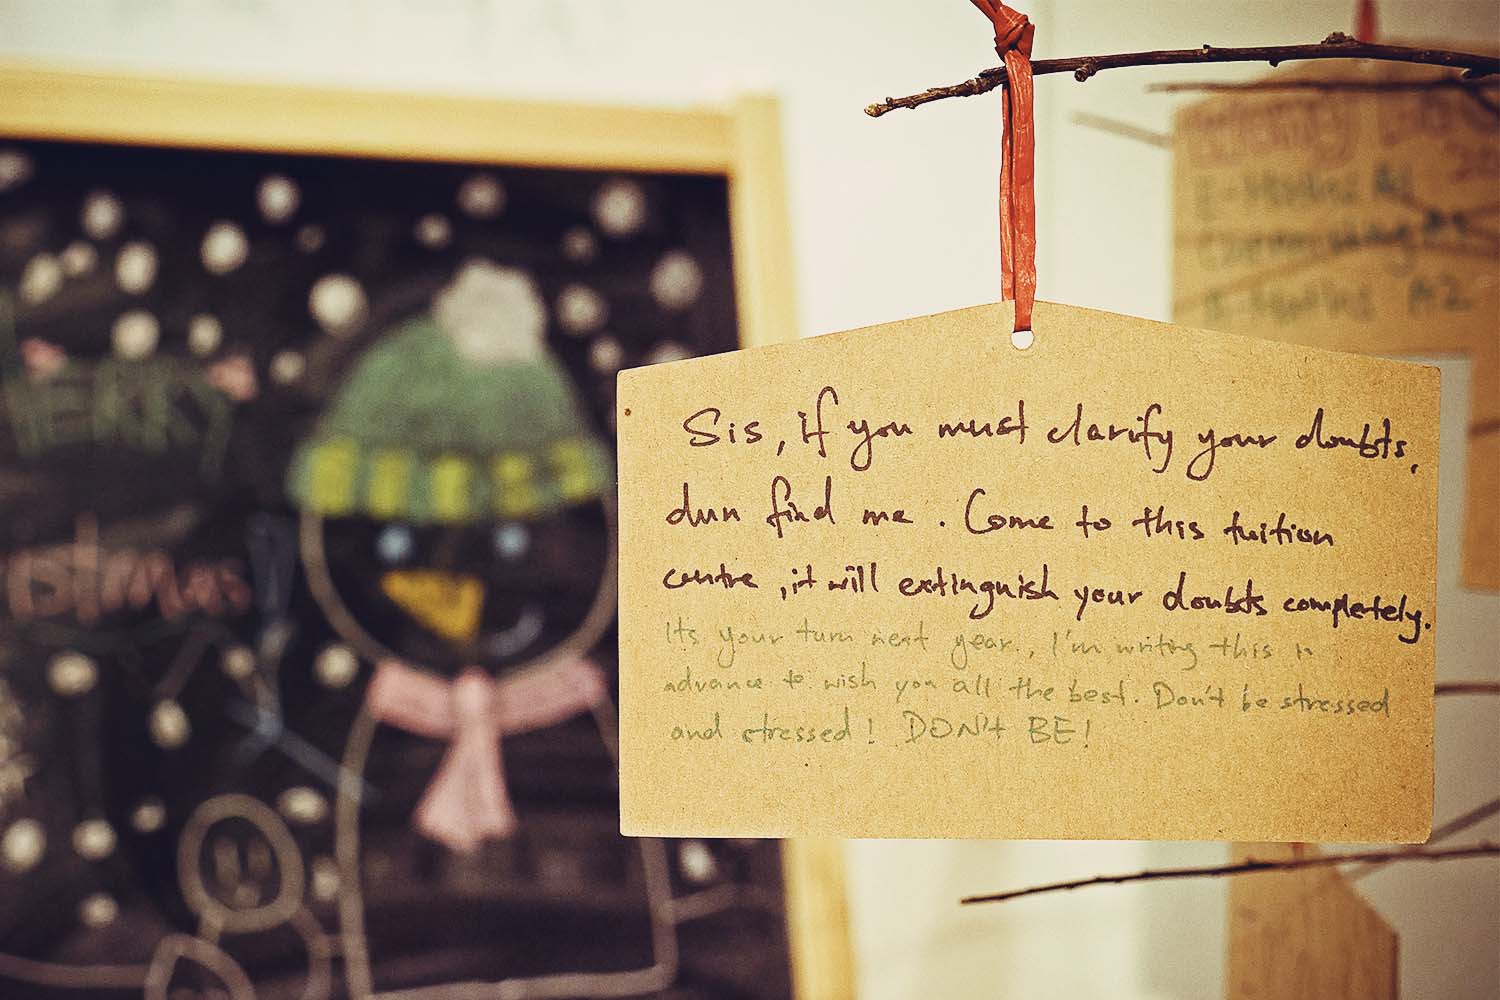 MERRY
Christmas
E-Maths A1
A-Maths A2
Sis, if you must clarify your doubts,
dun find me. Come to this tuition
centre, it will extinguish your doubts completely.
Its your turn next year., I'm writing this in
advance to wish you all the best. Don't be stressed
and stressed! DON't BE!